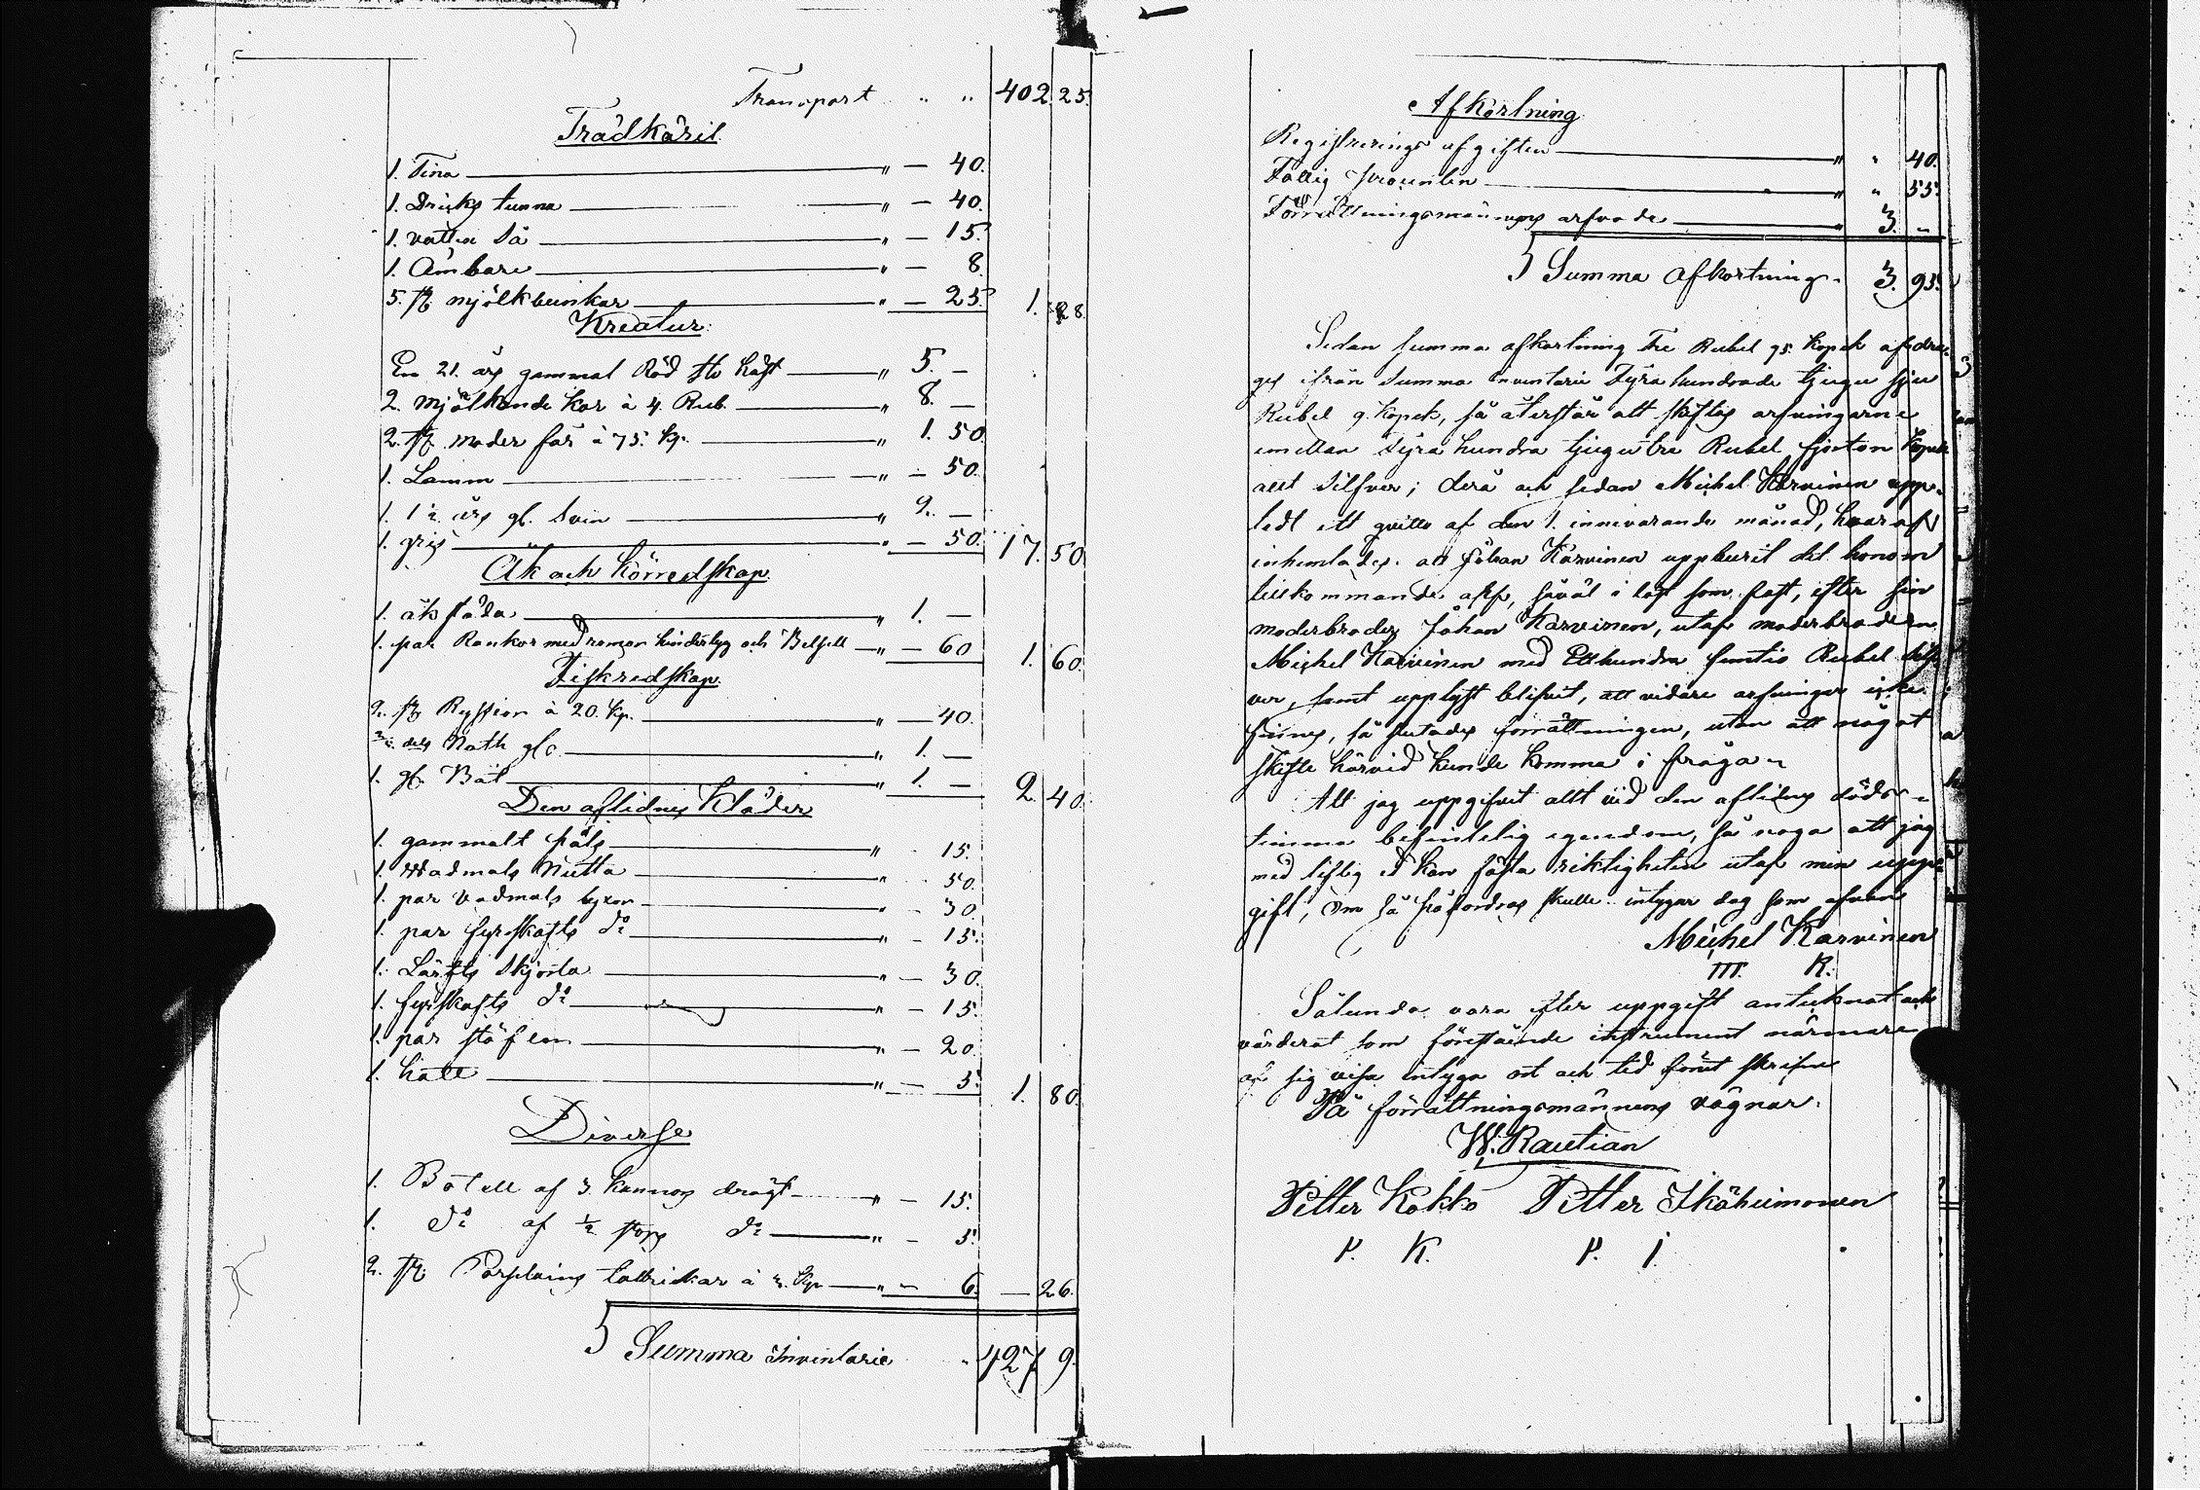 Transport " " 402. 25.
Trädkäril
1. Tina " — 40.
1. Dricks tunna " — 40.
1. vatten Så " — 15.
1. Ämbare " — 8.
5. st mjölkbunkar " — 25. 1. 28.
Kreatur.
En 21. års gammal Röd sto häst " 5. —
2. mjölkande kor à 4. Rub. " 8. —
2. st. moder får à 75. kp. " 1. 50.
1. Lamm " — 50.
1. 1½ års gl. Svin " 2. —
1. gris " — 50. 17. 50.
Åk och Körredskap.
1. åk släda " 1. —
1. par Rankor med remar hindertyg och " — 60 1. 60.
Fiskredskap.
2. st Ryssior à 20. kp. " — 40.
dels Noth gl. " 1. —
1. gl. Båt " 1. — 2. 40.
Den aflidnes Kläder
1. gammalt päls " 15.
1. Wadmals Nutta " 50.
1. par vadmals byxor " 30.
1. par fyrskafts do " — 15.
1. Lärfts Skjorta " — 30.
1. fyrskafts do " — 15.
1. par stöflor " — 20.
1. hatt " — 5. 1. 80.
Diverse
1. Botell af 3. kannors drägt " — 15.
1. do af ½ stops do " — 5.
2. st. Porslains tallrickar à 3. kp " — 6. — 26.
Summa Inventarie " 427 9.
Afkortning
Registrerings afgiften " " 40.
Fattig procenten " " 55.
Förrättningsmännens arfvode " 3. —
Summa Afkortning. 3. 95.
Sedan summa afkortning Tre Rubel 95. kopek afdra-
ges ifrån Summa inventarie Fyra hundrade tjugu sju
Rubel 9. kopek, så återstår att skiftas arfvingarne
emellan fyra hundra tjugutre Rubel fjorton kopek
allt Silfver; derå och sedan Michel Karvinen upp-
tedt ett qvitto af den 1. innevarande månad, hvaraf
inhemtades att Johan Karvinen uppburit det honom
tillkommande arf, såväl i löst som fast, efter sin
moderbroder Johan Karvinen, utaf moderbrodern
Michel Karvinen med Etthundra femtio Rubel Silf-
ver, samt upplyst blifvit, att vidare arfvingar icke
finnes, så slutades förrättningen, utan att något
skifte härvid kunde komma i fråga.
Att jag uppgifvit allt vid den aflidnes döds-
timma befintelig egendom, så noga att jag
med liflig Ed kan fästa riktigheten utaf min upp-
gift, om så påfordras skulle intygar dag som ofvan
Michel Karvinen
M. K.
Sålunda vara efter uppgift antecknat och
värderat som förestående instrument närmare
af sig visa intyga ort och tid förut skrifne
På förrättningsmännens vägnar.
W. Rautian
Petter Kokko Petter Ikäheimonen
P. K. P. I.